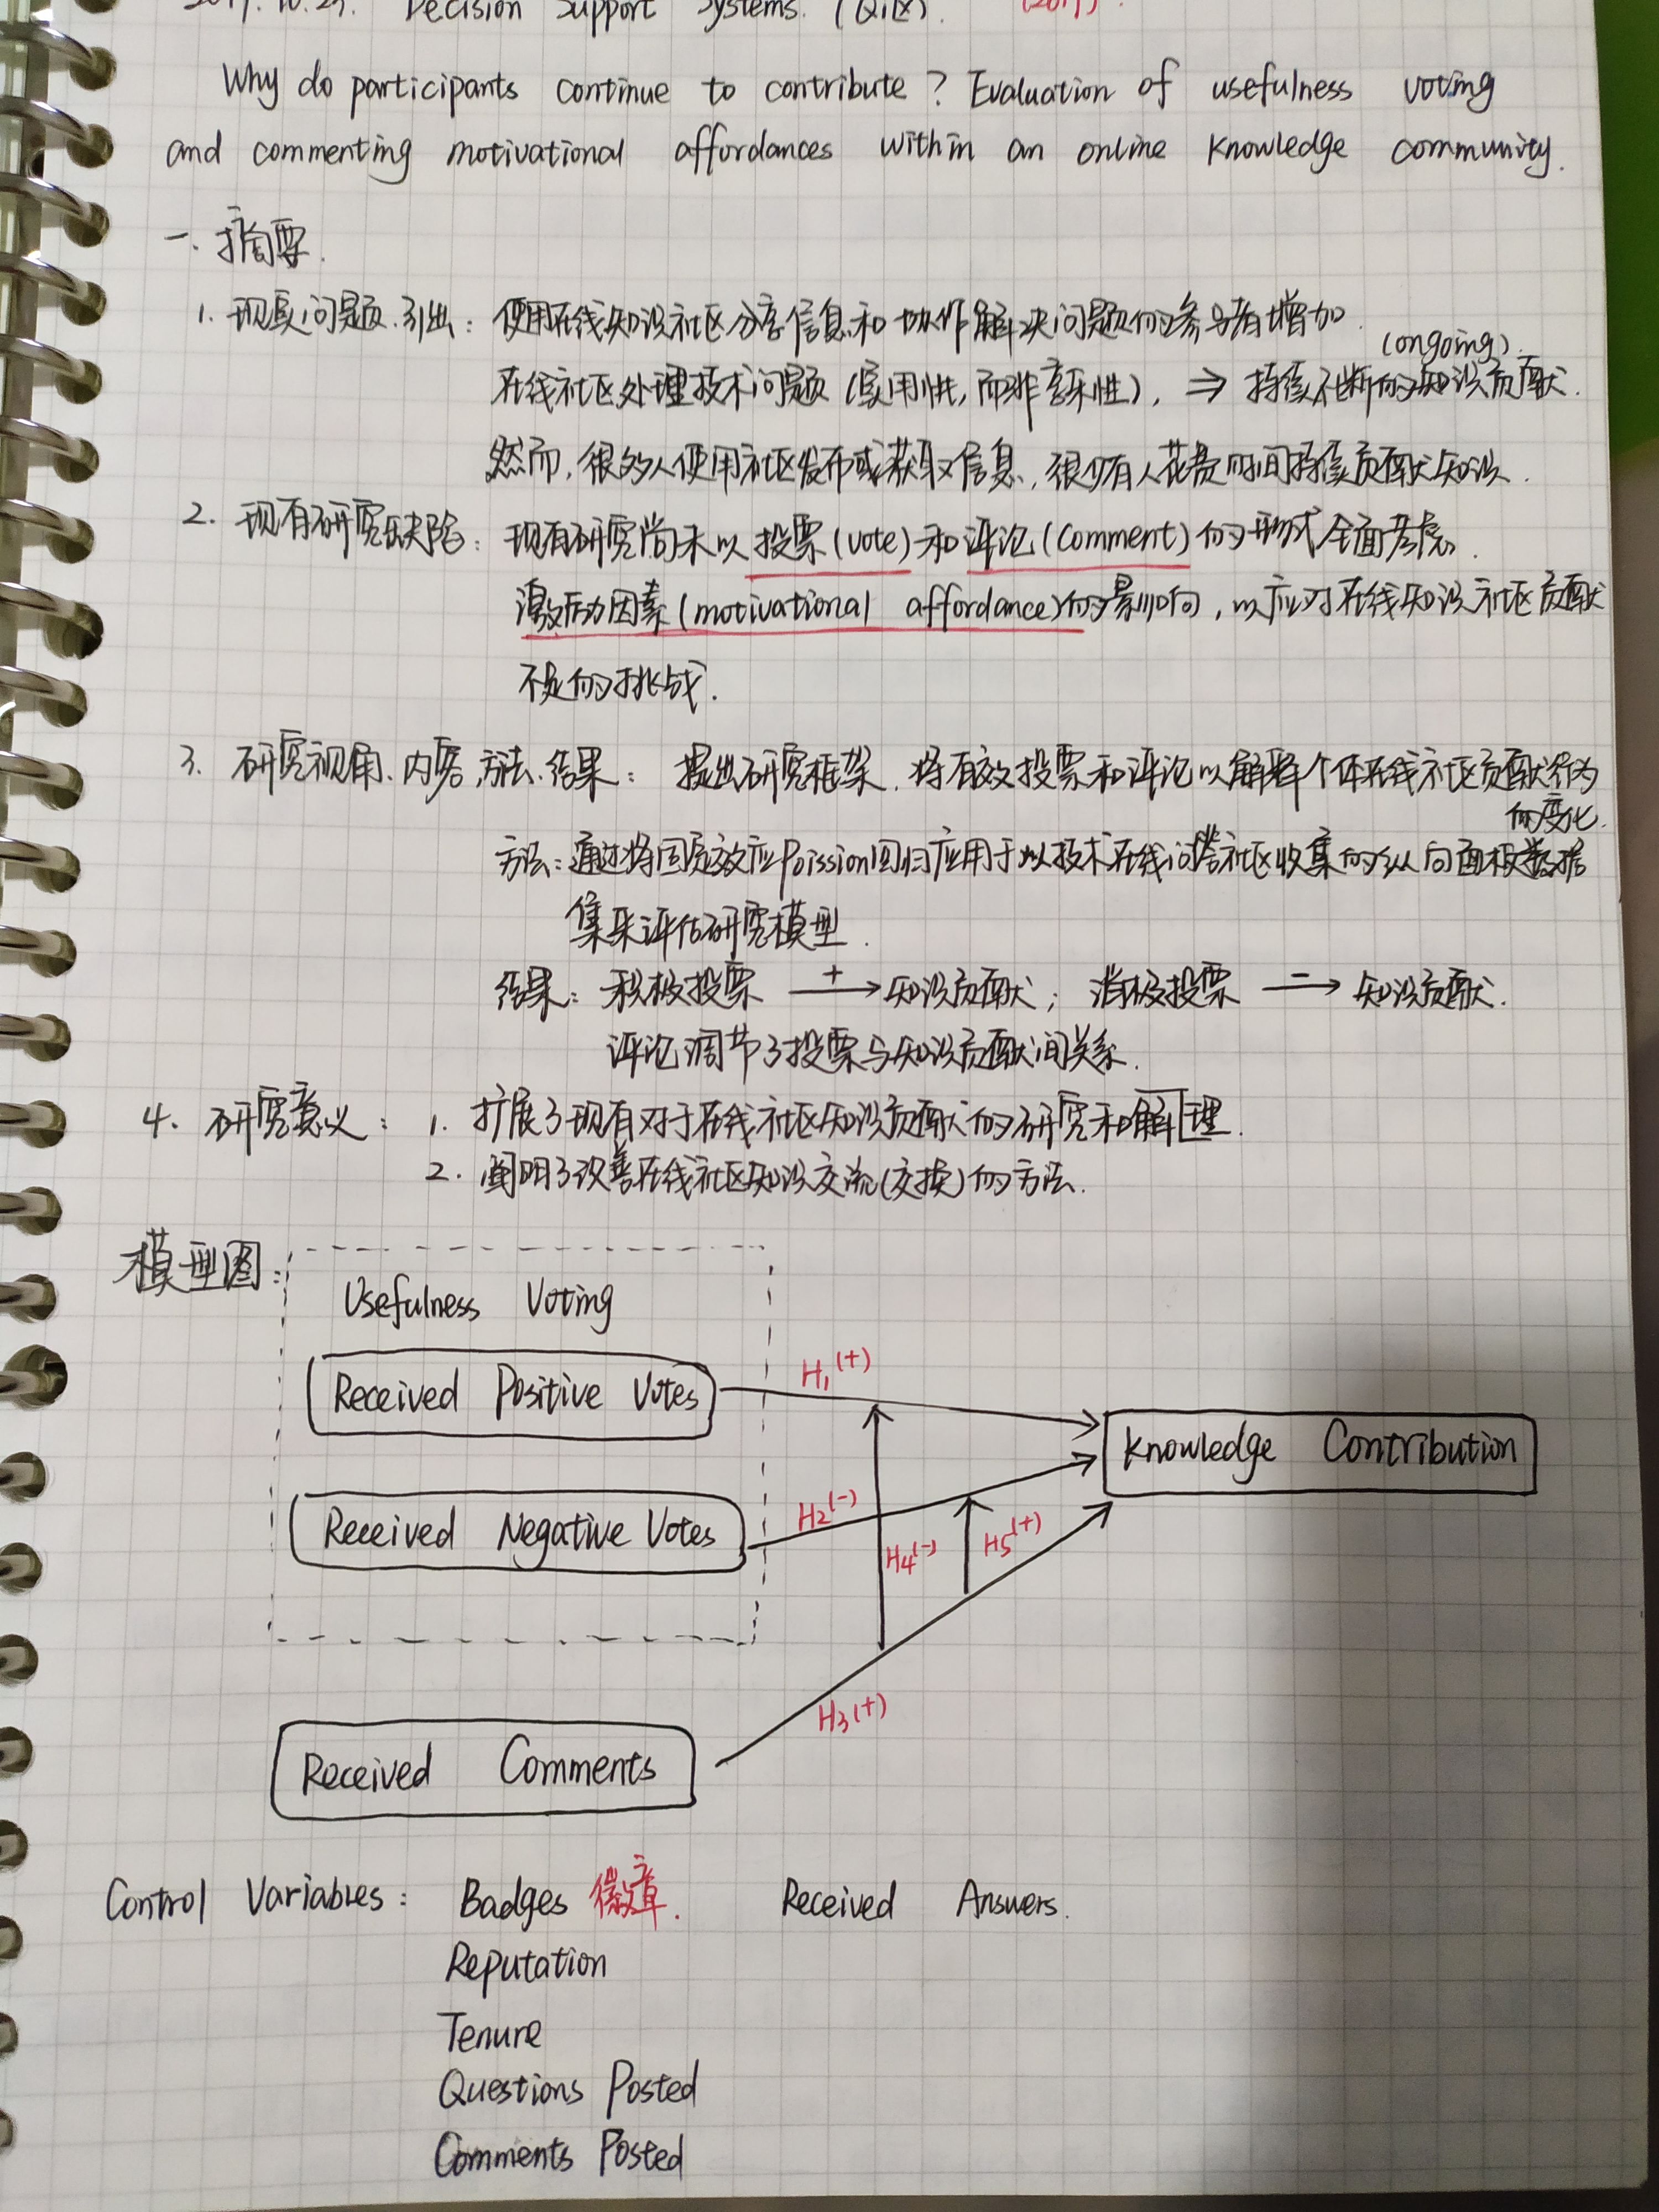 Decision Support Systems. (2019).
Why do participants continue to contribute? Evaluation of usefulness voting
and commenting motivational affordances within an online knowledge community.
一. 摘要.
1. 现实问题引出: 使用在线知识社区分享信息和协作解决问题的参与者增加.
(ongoing)
在线社区处理技术问题(实用性,而非享乐性), ⇒ 持续不断的知识贡献.
然而, 很多人使用社区发布或获取信息, 很少有人花费时间持续贡献知识.
2. 现有研究缺陷: 现有研究尚未以投票(vote)和评论(Comment)的形式全面考虑.
激励因素(motivational affordance)的影响, 以应对在线知识社区贡献
不足的挑战.
3. 研究视角、内容、方法、结果: 提出研究框架. 将有效投票和评论以解释个体在线社区贡献行为
的变化.
方法: 通过将固定效应Poission回归应用于从技术在线问答社区收集的纵向面板数据
集来评估研究模型.
结果: 积极投票 +→ 知识贡献; 消极投票 −→ 知识贡献.
评论调节了投票与知识贡献间关系.
4. 研究意义: 1. 扩展了现有对于在线社区知识贡献的研究和理解.
2. 阐明了改善在线社区知识交流(交换)的方法.
模型图:
Usefulness Voting
Received Positive Votes
H1(+)
Knowledge Contribution
Received Negative Votes
H2(-)
H4(-)
H5(+)
H3(+)
Received Comments
Control Variables: Badges 徽章. Received Answers.
Reputation
Tenure
Questions Posted
Comments Posted